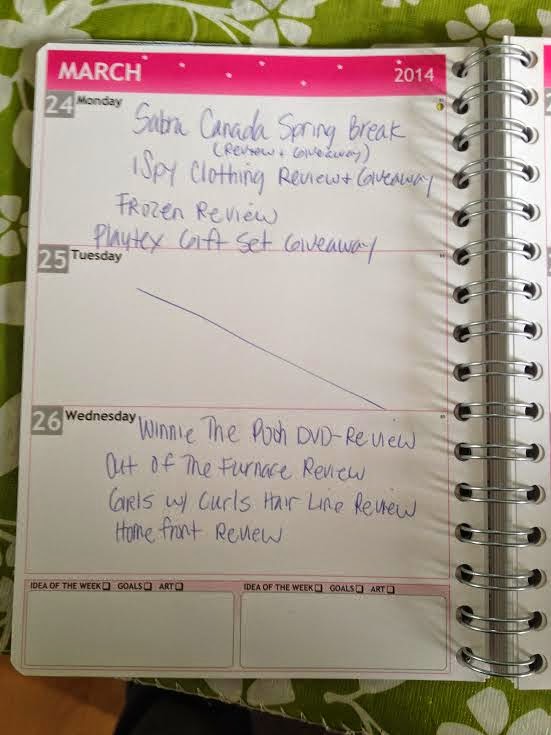 MARCH 2014
24 Monday
Sabra Canada Spring Break
(Review + Giveaway)
iSpy Clothing Review + Giveaway
Frozen Review
Playtex Gift Set Giveaway
25 Tuesday
26 Wednesday
Winnie The Pooh DVD-Review
Out Of The Furnace Review
Girls w/ Curls Hair Line Review
Homefront Review
IDEA OF THE WEEK GOALS ART IDEA OF THE WEEK GOALS ART